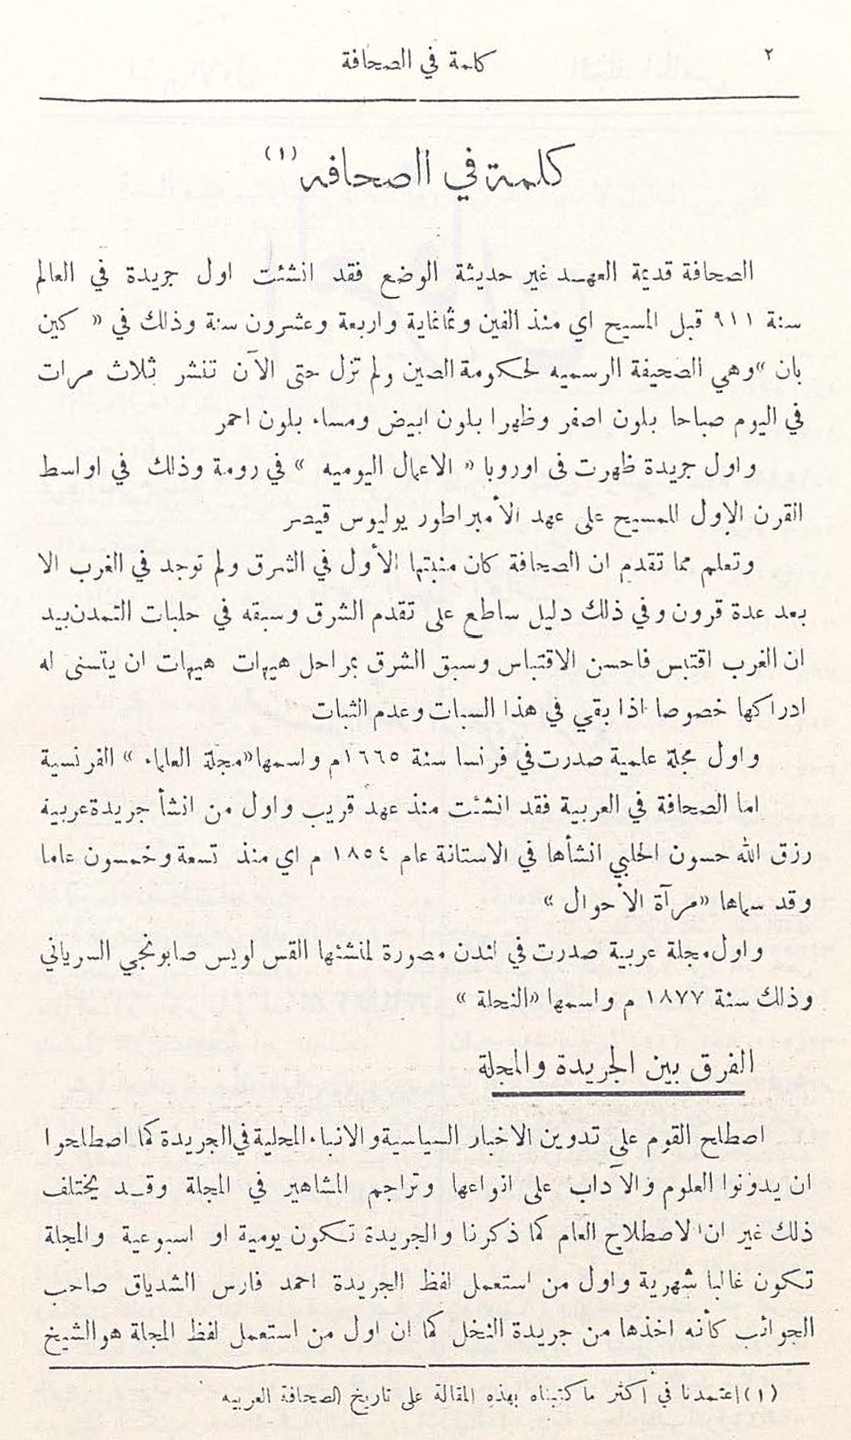 ٢
كلمة في الصحافة
كلمة في الصحافه (١)
الصحافة قديمة العهـد غير حديثة الوضع فقد انشئت اول جريدة في العالم
سنة ٩١١ قبل المسيح اي منذ الفين وثمانماية واربعة وعشرون سنة وذلك في « كين
بان » وهي الصحيفة الرسميه لحكومة الصين ولم تزل حتى الآن تنشر ثلاث مرات
في اليوم صباحا بلون اصفر وظهرا بلون ابيض ومساء بلون احمر
واول جريدة ظهرت فى اوروبا « الاعمال اليوميه » في رومة وذلك في اواسط
القرن الاول للمسيح على عهد الأمبراطور يوليوس قيصر
وتعلم مما تقدم ان الصحافة كان منبتها الأول في الشرق ولم توجد في الغرب الا
بعد عدة قرون وفي ذلك دليل ساطع على تقدم الشرق وسبقه في حلبات التمدن بيد
ان الغرب اقتبس فاحسن الاقتباس وسبق الشرق بمراحل هيهات هيهات ان يتسنى له
ادراكها خصوصا اذا بقي في هذا السبات وعدم الثبات
واول مجلة علمية صدرت في فرنسا سنة ١٦٦٥ م واسمها «مجلة العلماء » الفرنسية
اما الصحافة في العربية فقد انشئت منذ عهد قريب واول من انشأ جريدة عربية
رزق الله حسون الحلبي انشأها في الاستانة عام ١٨٥٤ م اي منذ تسعة وخمسون عاما
وقد سماها «مرآة الأحوال »
واول مجلة عربية صدرت في لندن مصورة لمنشئها القس لويس صابونجي السرياني
وذلك سنة ١٨٧٧ م واسمها «النحلة »
الفرق بين الجريدة والمجلة
اصطلح القوم على تدوين الاخبار السياسية والانباء المحلية في الجريدة كما اصطلحوا
ان يدونوا العلوم والآداب على انواعها وتراجم المشاهير في المجلة وقـد يختلف
ذلك غير ان الاصطلاح العام كما ذكرنا والجريدة تكون يومية او اسبوعية والمجلة
تكون غالبا شهرية واول من استعمل لفظ الجريدة احمد فارس الشدياق صاحب
الجوائب كأنه اخذها من جريدة النخل كما ان اول من استعمل لفظ المجلة هو الشيخ
(١) اعتمدنا في اكثر ماكتبناه بهذه المقالة على تاريخ الصحافة العربيه